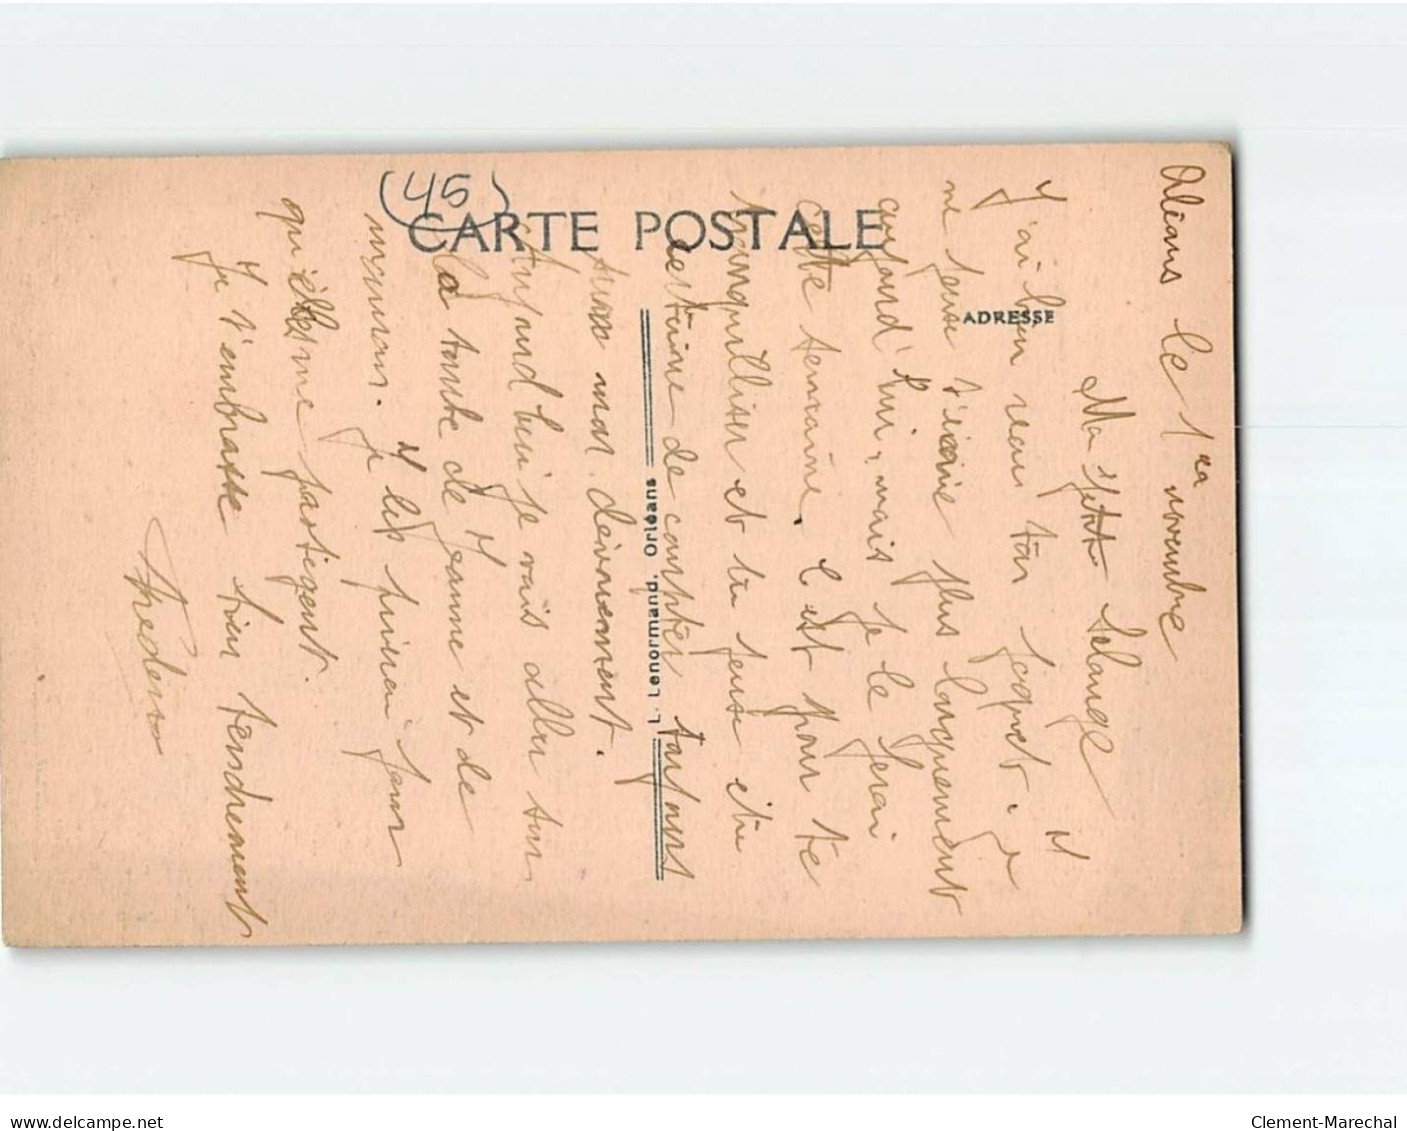 (45)
CARTE POSTALE
ADRESSE
L. Lenormand. Orléans
le 1er novembre
Ma
J'ai bien reçu ton
ne puis t'écrire plus longuement
aujourd'hui, mais je le ferai
cette semaine. C'est pour te
tranquilliser et tu peux être
certaine de compter toujours
sur mon dévouement.
Aujourd'hui je vais aller sur
la tombe de Jeanne et de
maman. Je les prierai pour
qu'elles me protègent.
Je t'embrasse bien tendrement
delcampe.net
Clement-Marechal